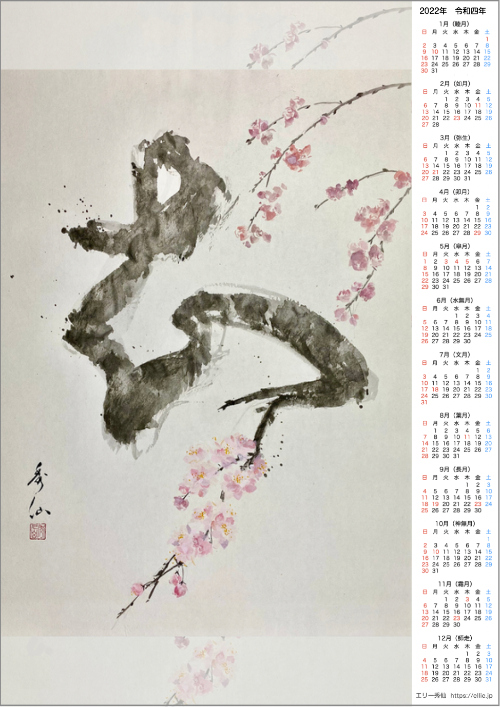 秀仙
2022年 令和四年
1月 (睦月)
日 月 火 水 木 金 土
1
2 3 4 5 6 7 8
9 10 11 12 13 14 15
16 17 18 19 20 21 22
23 24 25 26 27 28 29
30 31
2月 (如月)
日 月 火 水 木 金 土
1 2 3 4 5
6 7 8 9 10 11 12
13 14 15 16 17 18 19
20 21 22 23 24 25 26
27 28
3月 (弥生)
日 月 火 水 木 金 土
1 2 3 4 5
6 7 8 9 10 11 12
13 14 15 16 17 18 19
20 21 22 23 24 25 26
27 28 29 30 31
4月 (卯月)
日 月 火 水 木 金 土
1 2
3 4 5 6 7 8 9
10 11 12 13 14 15 16
17 18 19 20 21 22 23
24 25 26 27 28 29 30
5月 (皐月)
日 月 火 水 木 金 土
1 2 3 4 5 6 7
8 9 10 11 12 13 14
15 16 17 18 19 20 21
22 23 24 25 26 27 28
29 30 31
6月 (水無月)
日 月 火 水 木 金 土
1 2 3 4
5 6 7 8 9 10 11
12 13 14 15 16 17 18
19 20 21 22 23 24 25
26 27 28 29 30
7月 (文月)
日 月 火 水 木 金 土
1 2
3 4 5 6 7 8 9
10 11 12 13 14 15 16
17 18 19 20 21 22 23
24 25 26 27 28 29 30
31
8月 (葉月)
日 月 火 水 木 金 土
1 2 3 4 5 6
7 8 9 10 11 12 13
14 15 16 17 18 19 20
21 22 23 24 25 26 27
28 29 30 31
9月 (長月)
日 月 火 水 木 金 土
1 2 3
4 5 6 7 8 9 10
11 12 13 14 15 16 17
18 19 20 21 22 23 24
25 26 27 28 29 30
10月 (神無月)
日 月 火 水 木 金 土
1
2 3 4 5 6 7 8
9 10 11 12 13 14 15
16 17 18 19 20 21 22
23 24 25 26 27 28 29
30 31
11月 (霜月)
日 月 火 水 木 金 土
1 2 3 4 5
6 7 8 9 10 11 12
13 14 15 16 17 18 19
20 21 22 23 24 25 26
27 28 29 30
12月 (師走)
日 月 火 水 木 金 土
1 2 3
4 5 6 7 8 9 10
11 12 13 14 15 16 17
18 19 20 21 22 23 24
25 26 27 28 29 30 31
エリー秀仙 https://ellie.jp